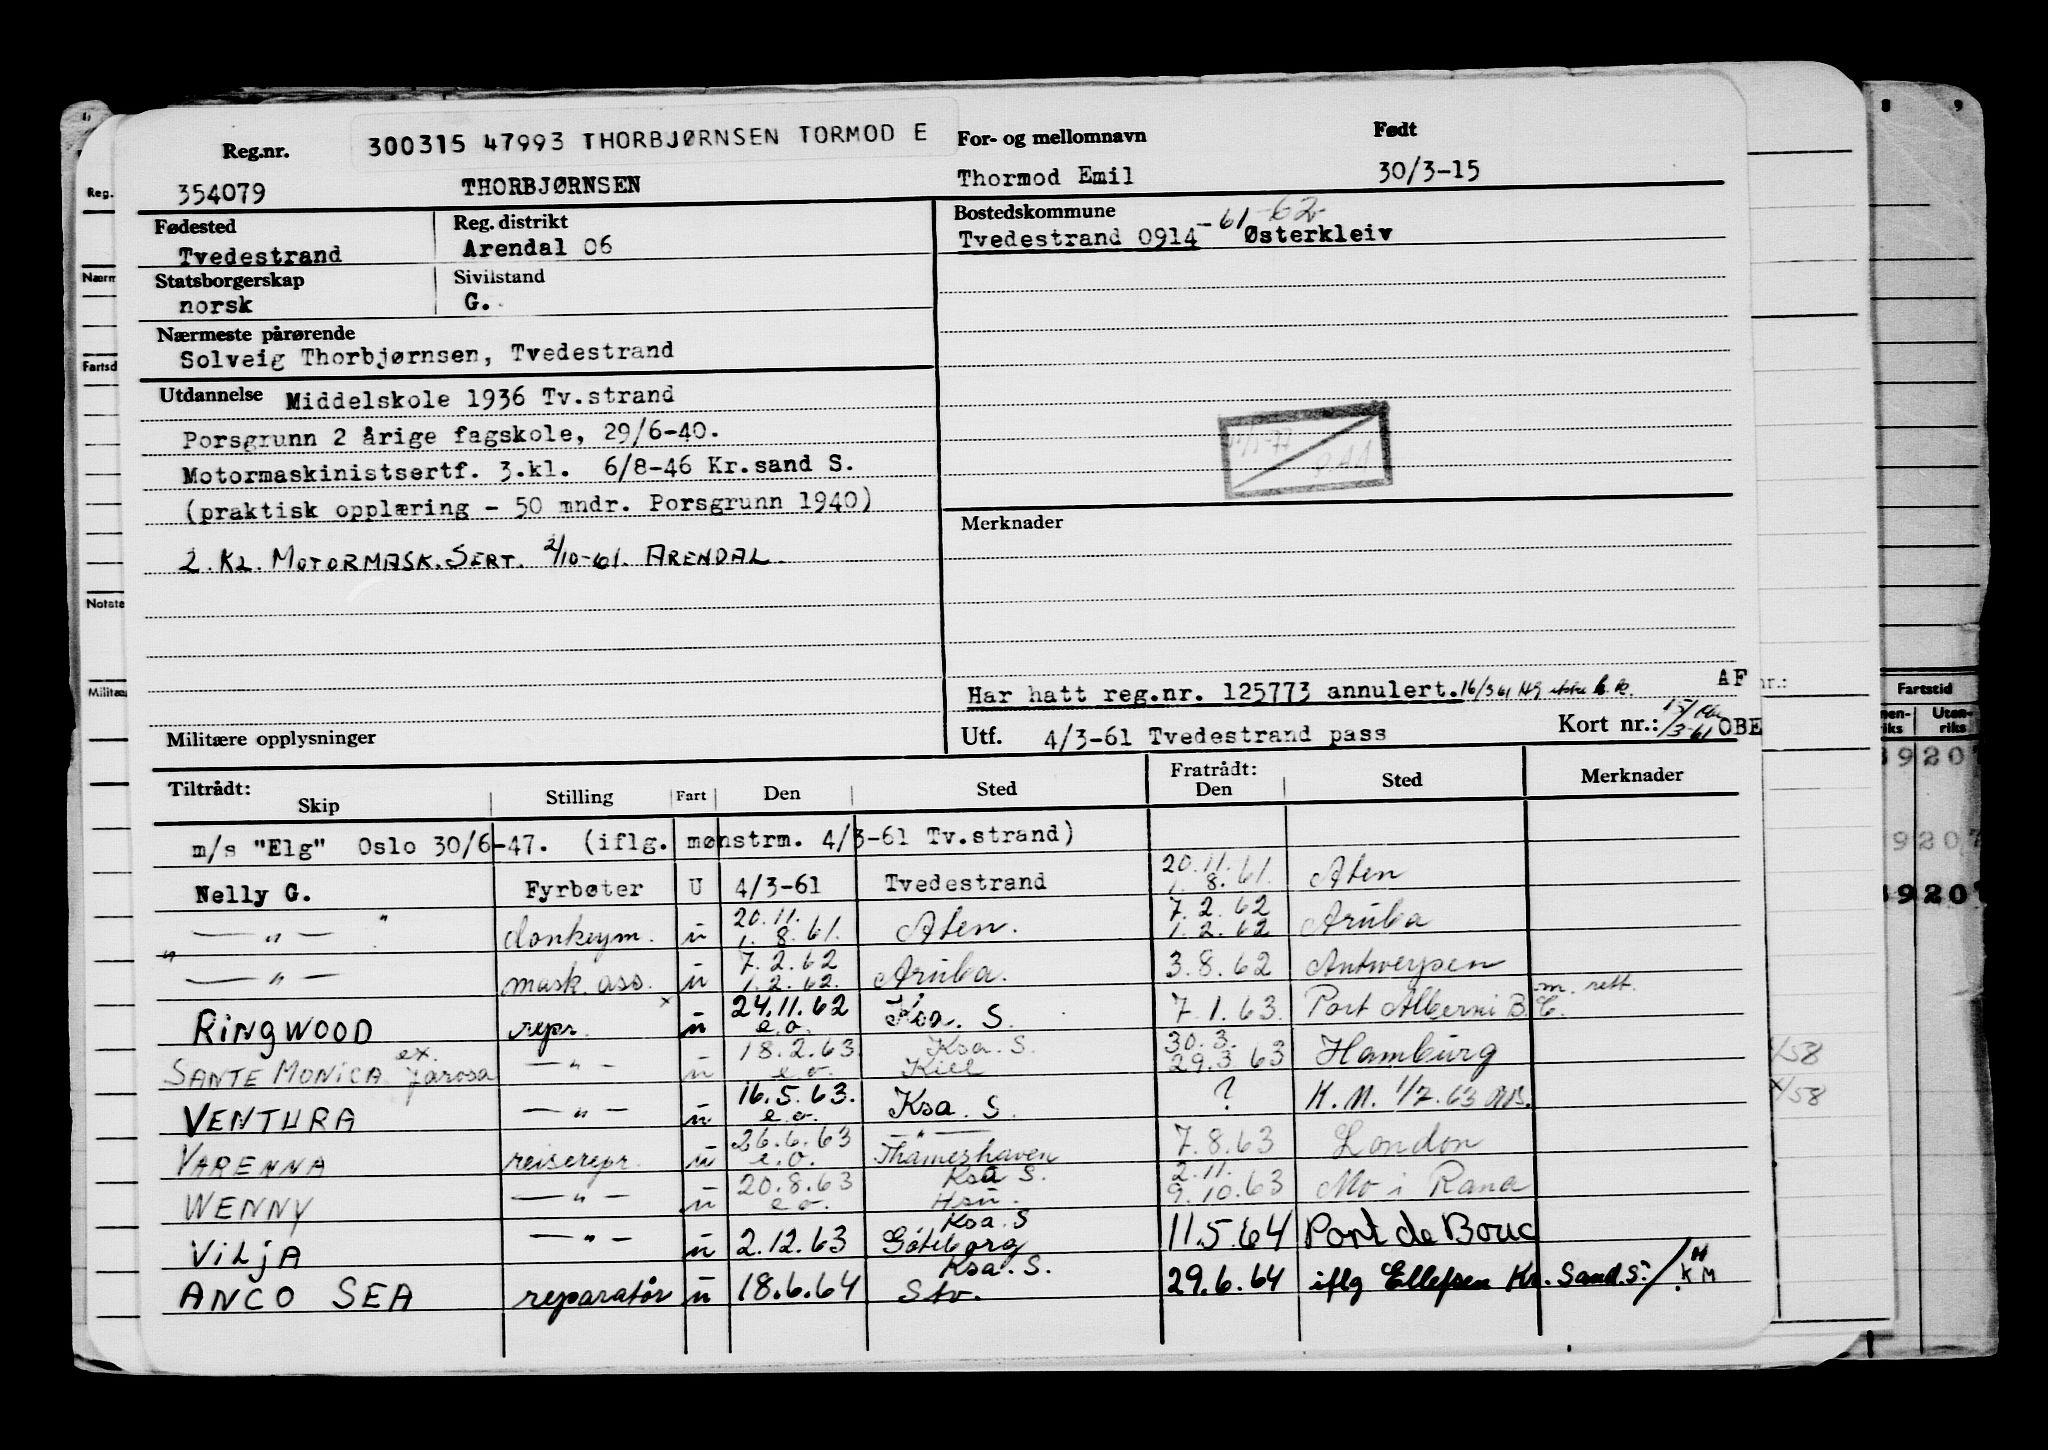 300315 47993 THORBJØRNSEN TORMOD E
Reg.nr. For- og mellomnavn Født
354079 THORBJØRNSEN Thormod Emil 30/3-15
Fødested Reg. distrikt Bostedskommune
Tvedestrand Arendal 06 Tvedestrand 0914 -61 -62 Østerkleiv
Statsborgerskap Sivilstand
norsk G.
Nærmeste pårørende
Solveig Thorbjørnsen, Tvedestrand
Utdannelse Middelskole 1936 Tv.strand
Porsgrunn 2 årige fagskole, 29/6-40.
Motormaskinistsertf. 3.kl. 6/8-46 Kr.sand S.
(praktisk opplæring - 50 mndr. Porsgrunn 1940)
2. KL. MOTORMASK. SERT. 2/10-61. ARENDAL.
Merknader
Har hatt reg.nr. 125773 annulert. AF
Militære opplysninger Utf. 4/3-61 Tvedestrand pass Kort nr.: OBE
Tiltrådt: Skip Stilling Fart Den Sted Fratrådt: Den Sted Merknader
m/s "Elg" Oslo 30/6-47. (iflg. mønstrm. 4/3-61 Tv.strand)
Nelly G. Fyrbøter U 4/3-61 Tvedestrand 20.11. 1.8.61. Aten
— " — donkeym. u 20.11. 1.8.61. Aten. 7.2.62 1.2.62 Aruba
— " — mask. ass. u 7.2.62 1.2.62. Aruba. 3.8.62 Antwerpen
RINGWOOD repr. x u 24.11.62 e.o. Ksa. S. 7.1.63. Port Alberni B.C. m. rett.
SANTE MONICA ex. Jarosa — " — u 18.2.63. e.o. Ksa. S. Kiel 30.3. 29.3.63 Hamburg
VENTURA — " — u 16.5.63. e.o. Ksa. S. ? K.M. 1/7.63
VARENNA reiserepr. u 26.6.63 e.o. — " — Thameshaven 7.8.63 London
WENNY — " — u 20.8.63 e.o. Ksa S. Hsu. 2.11. 9.10.63 Mo i Rana
VILJA — " — u 2.12.63 Ksa. S Göteborg 11.5.64 Port de Bouc
ANCO SEA reparatør u 18.6.64 Ksa. S. Stv. 29.6.64 iflg Ellefsen Kr. Sand. S. / H KM
Reg.
Nærm
Fartsd
Notate
Militæ
8 9
nr.:
Fartstid
nen-riks Uten-riks
9207
9207
9207
/58
/58